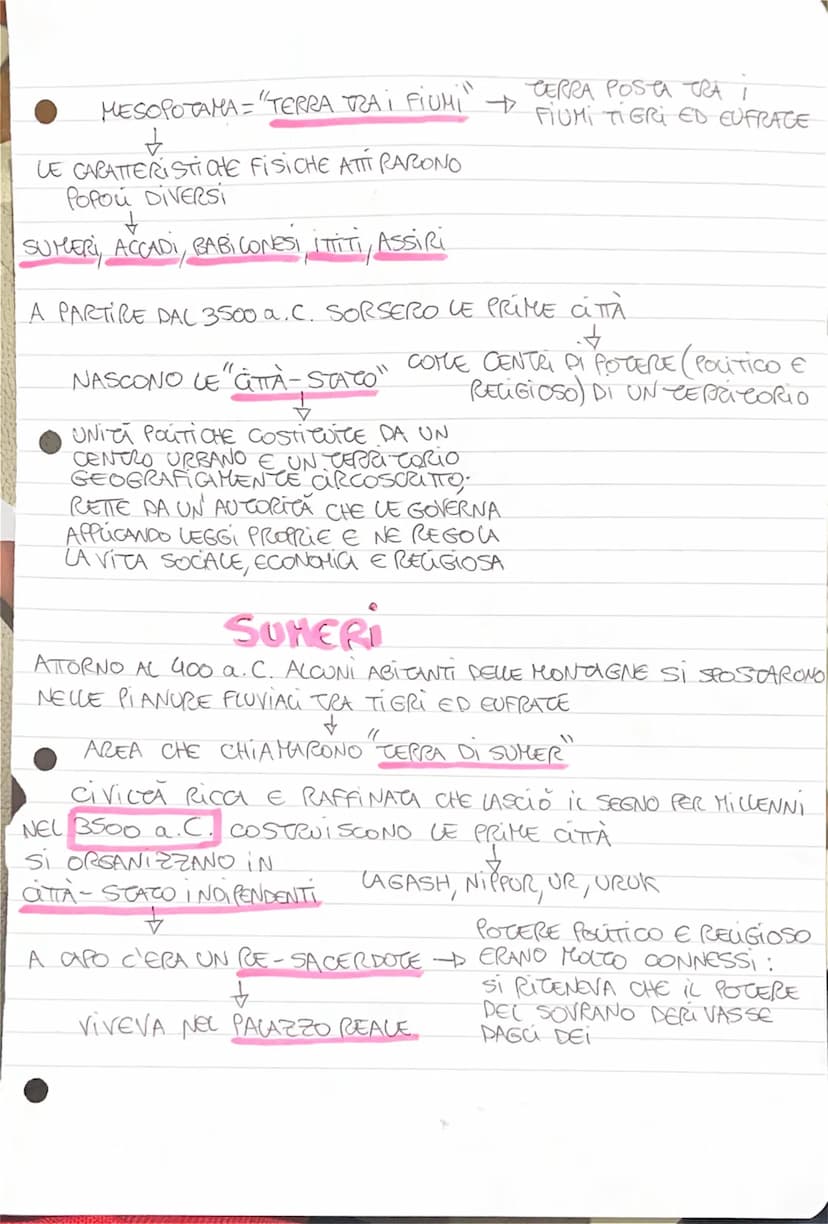 MESOPOTAMA = "TERRA TRA I FIUMI" → TERRA POSTA TRA I
FIUMI TIGRI ED EUFRATE
↓
LE CARATTERISTICHE FISICHE ATTIRARONO
POPOLI DIVERSI
↓
SUMERI, ACCADI, BABILONESI, ITTITI, ASSIRI
A PARTIRE DAL 3500 a.C. SORSERO LE PRIME CITTÀ
↓
COME CENTRI DI POTERE (POLITICO E
RELIGIOSO) DI UN TERRITORIO
NASCONO LE "CITTÀ-STATO"
↓
UNITÀ POLITICHE COSTITUITE DA UN
CENTRO URBANO E UN TERRITORIO
GEOGRAFICAMENTE CIRCOSCRITTO;
RETTE DA UN'AUTORITÀ CHE LE GOVERNA
APPLICANDO LEGGI PROPRIE E NE REGOLA
LA VITA SOCIALE, ECONOMICA E RELIGIOSA
SUMERI
ATTORNO AL 400 a.C. ALCUNI ABITANTI DELLE MONTAGNE SI SPOSTARONO
NELLE PIANURE FLUVIALI TRA TIGRI ED EUFRATE
↓
AREA CHE CHIAMARONO "TERRA DI SUMER"
CIVILTÀ RICCA E RAFFINATA CHE LASCIÒ IL SEGNO PER MILLENNI
NEL 3500 a.C. COSTRUISCONO LE PRIME CITTÀ
↓
LAGASH, NIPPUR, UR, URUK
SI ORGANIZZANO IN
CITTÀ-STATO INDIPENDENTI
↓
A CAPO C'ERA UN RE-SACERDOTE → POTERE POLITICO E RELIGIOSO
ERANO MOLTO CONNESSI:
SI RITENEVA CHE IL POTERE
DEL SOVRANO DERIVASSE
DAGLI DEI
↓
VIVEVA NEL PALAZZO REALE